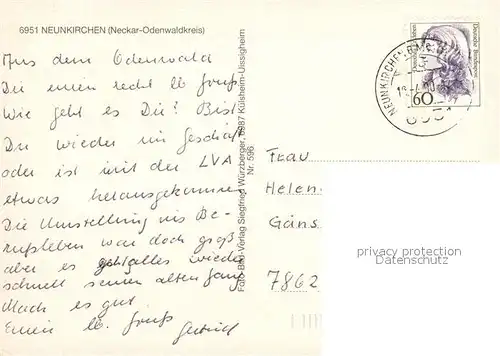 6951 NEUNKIRCHEN (Neckar-Odenwaldkreis)
Aus dem Odenwald
Dir einen recht lb. Gruß
Wie geht es Dir? Bist
Du wieder im Geschäft
oder ist mit der LVA
etwas herausgekommen
Die Umstellung ins Be-
rufsleben war doch groß
aber es geht alles wieder
schnell seinen alten Gang
Mach es gut
Einen lb. Gruß
Foto-Bild-Verlag Siegfried Würzberger, 6987 Külsheim-Uissigheim
Nr. 596
60
Deutsche Bundespost
NEUNKIRCHEN
6951
Frau
Helen
Gäns
7862
privacy protection
AnsichtskartenVersand.com